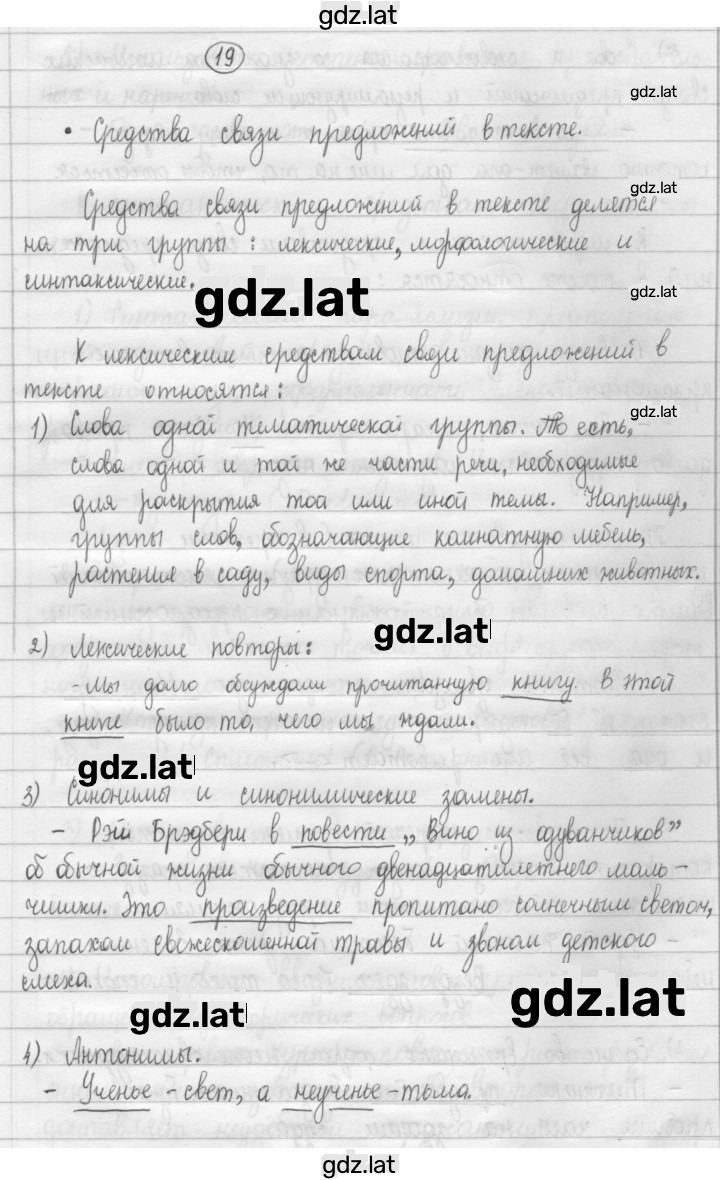 gdz.lat
19
gdz.lat
• Средства связи предложений в тексте.
gdz.lat
Средства связи предложений в тексте делятся
на три группы: лексические, морфологические и
синтаксические.
gdz.lat
gdz.lat
К лексическим средствам связи предложений в
тексте относятся:
gdz.lat
1) Слова одной тематической группы. То есть,
слова одной и той же части речи, необходимые
для раскрытия той или иной темы. Например,
группы слов, обозначающие комнатную мебель,
растение в саду, виды спорта, домашних животных.
gdz.lat
2) Лексические повторы:
- Мы долго обсуждали прочитанную книгу. В этой
книге было то, чего мы ждали.
gdz.lat
3) Синонимы и синонимические замены.
- Рэй Брэдбери в повести „Вино из одуванчиков"
об обычной жизни обычного двенадцатилетнего маль-
чишки. Это произведение пропитано солнечным светом,
запахом свежескошенной травы и звоном детского
смеха.
gdz.lat
gdz.lat
4) Антонимы.
- Ученье - свет, а неученье - тьма.
gdz.lat